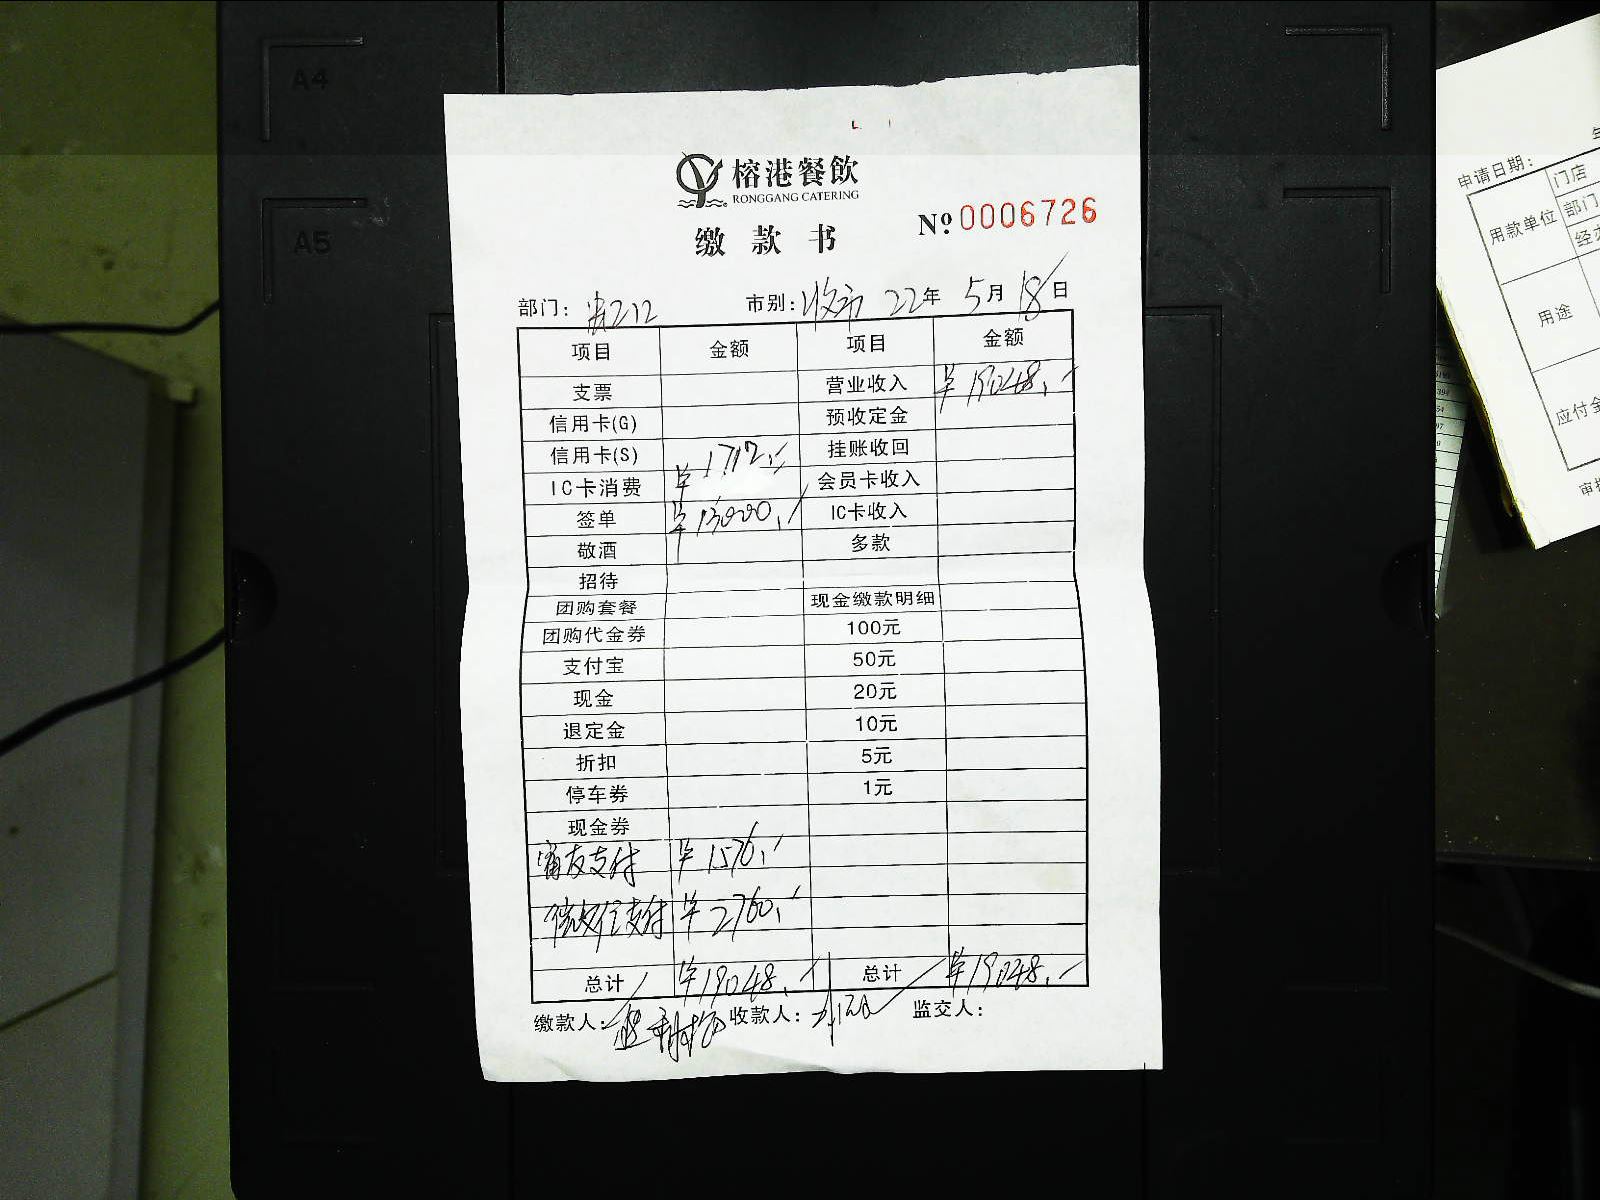 A4
A5
榕港餐飲
RONGGANG CATERING
缴款书
№0006726
部门:
市别:收市 22年 5月 18日
项目 金额 项目 金额
支票 营业收入 ¥19048.-
信用卡(G) 预收定金
信用卡(S) 挂账收回
IC卡消费 ¥1712.- 会员卡收入
签单 ¥13000.- IC卡收入
敬酒 多款
招待
团购套餐 现金缴款明细
团购代金券 100元
支付宝 50元
现金 20元
退定金 10元
折扣 5元
停车券 1元
现金券
支付 ¥1576.-
支付 ¥2760.-
总计 ¥19048.- 总计 ¥19048.-
缴款人: 收款人: 监交人:
申请日期:
用款单位 门店
部门
用途
应付